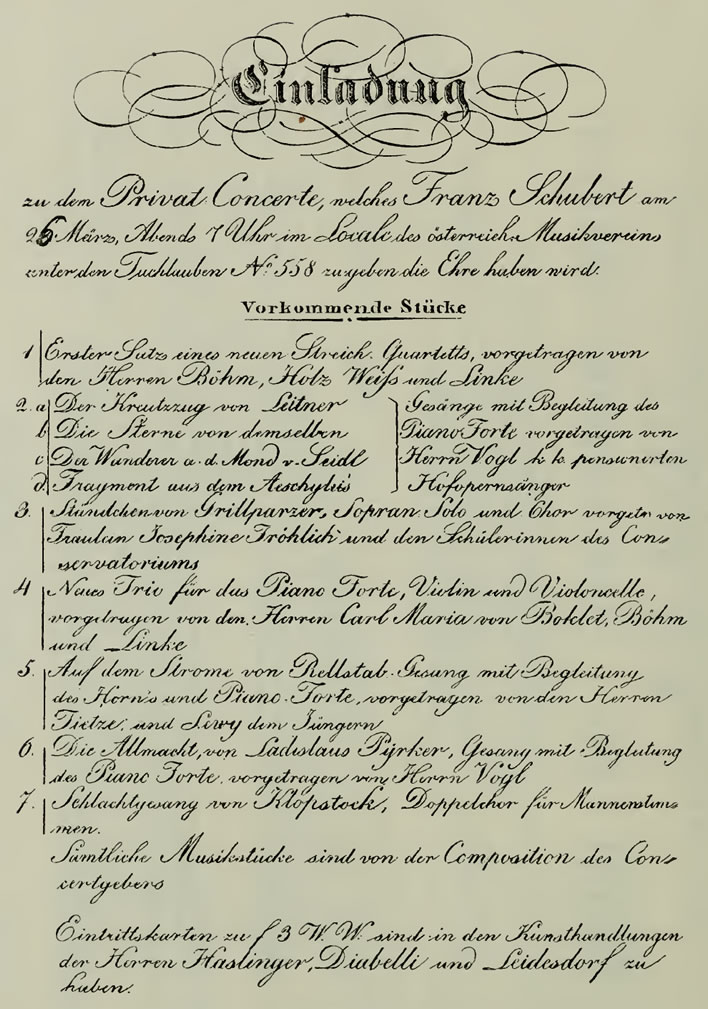 Einladung
zu dem Privat Concerte, welches Franz Schubert am
26 März, Abends 7 Uhr im Locale des österreich. Musikvereins
unter den Tuchlauben No. 558 zu geben die Ehre haben wird.
Vorkommende Stücke
1 Erster Satz eines neuen Streich-Quartetts, vorgetragen von
den Herren Böhm, Holz Weiss und Linke
2. a Der Kreutzzug von Leitner
b Die Sterne von demselben
c Der Wanderer a. d. Mond v. Seidl
d. Fragment aus dem Aeschylus
Gesänge mit Begleitung des
Piano Forte vorgetragen von
Herrn Vogl k. k. pensionierten
Hofopernsänger
3. Ständchen von Grillparzer, Sopran Solo und Chor vorgetr. von
Fräulein Josephine Fröhlich und den Schülerinnen des Con-
servatoriums
4 Neues Trio für das Piano Forte, Violin und Violoncelle,
vorgetragen von den Herren Carl Maria von Boklet, Böhm
und Linke
5. Auf dem Strome von Rellstab. Gesang mit Begleitung
des Horn's und Piano-Forte, vorgetragen von den Herren
Tietze, und Lewy dem Jüngern
6. Die Allmacht, von Ladislaus Pyrker, Gesang mit Begleitung
des Piano Forte, vorgetragen von Herrn Vogl
7. Schlachtgesang von Klopstock, Doppelchor für Männerstim-
men.
Sämtliche Musikstücke sind von der Composition des Con-
certgebers
Eintrittskarten zu f 3 W. W. sind in den Kunsthandlungen
der Herren Haslinger, Diabelli und Leidesdorf zu
haben.